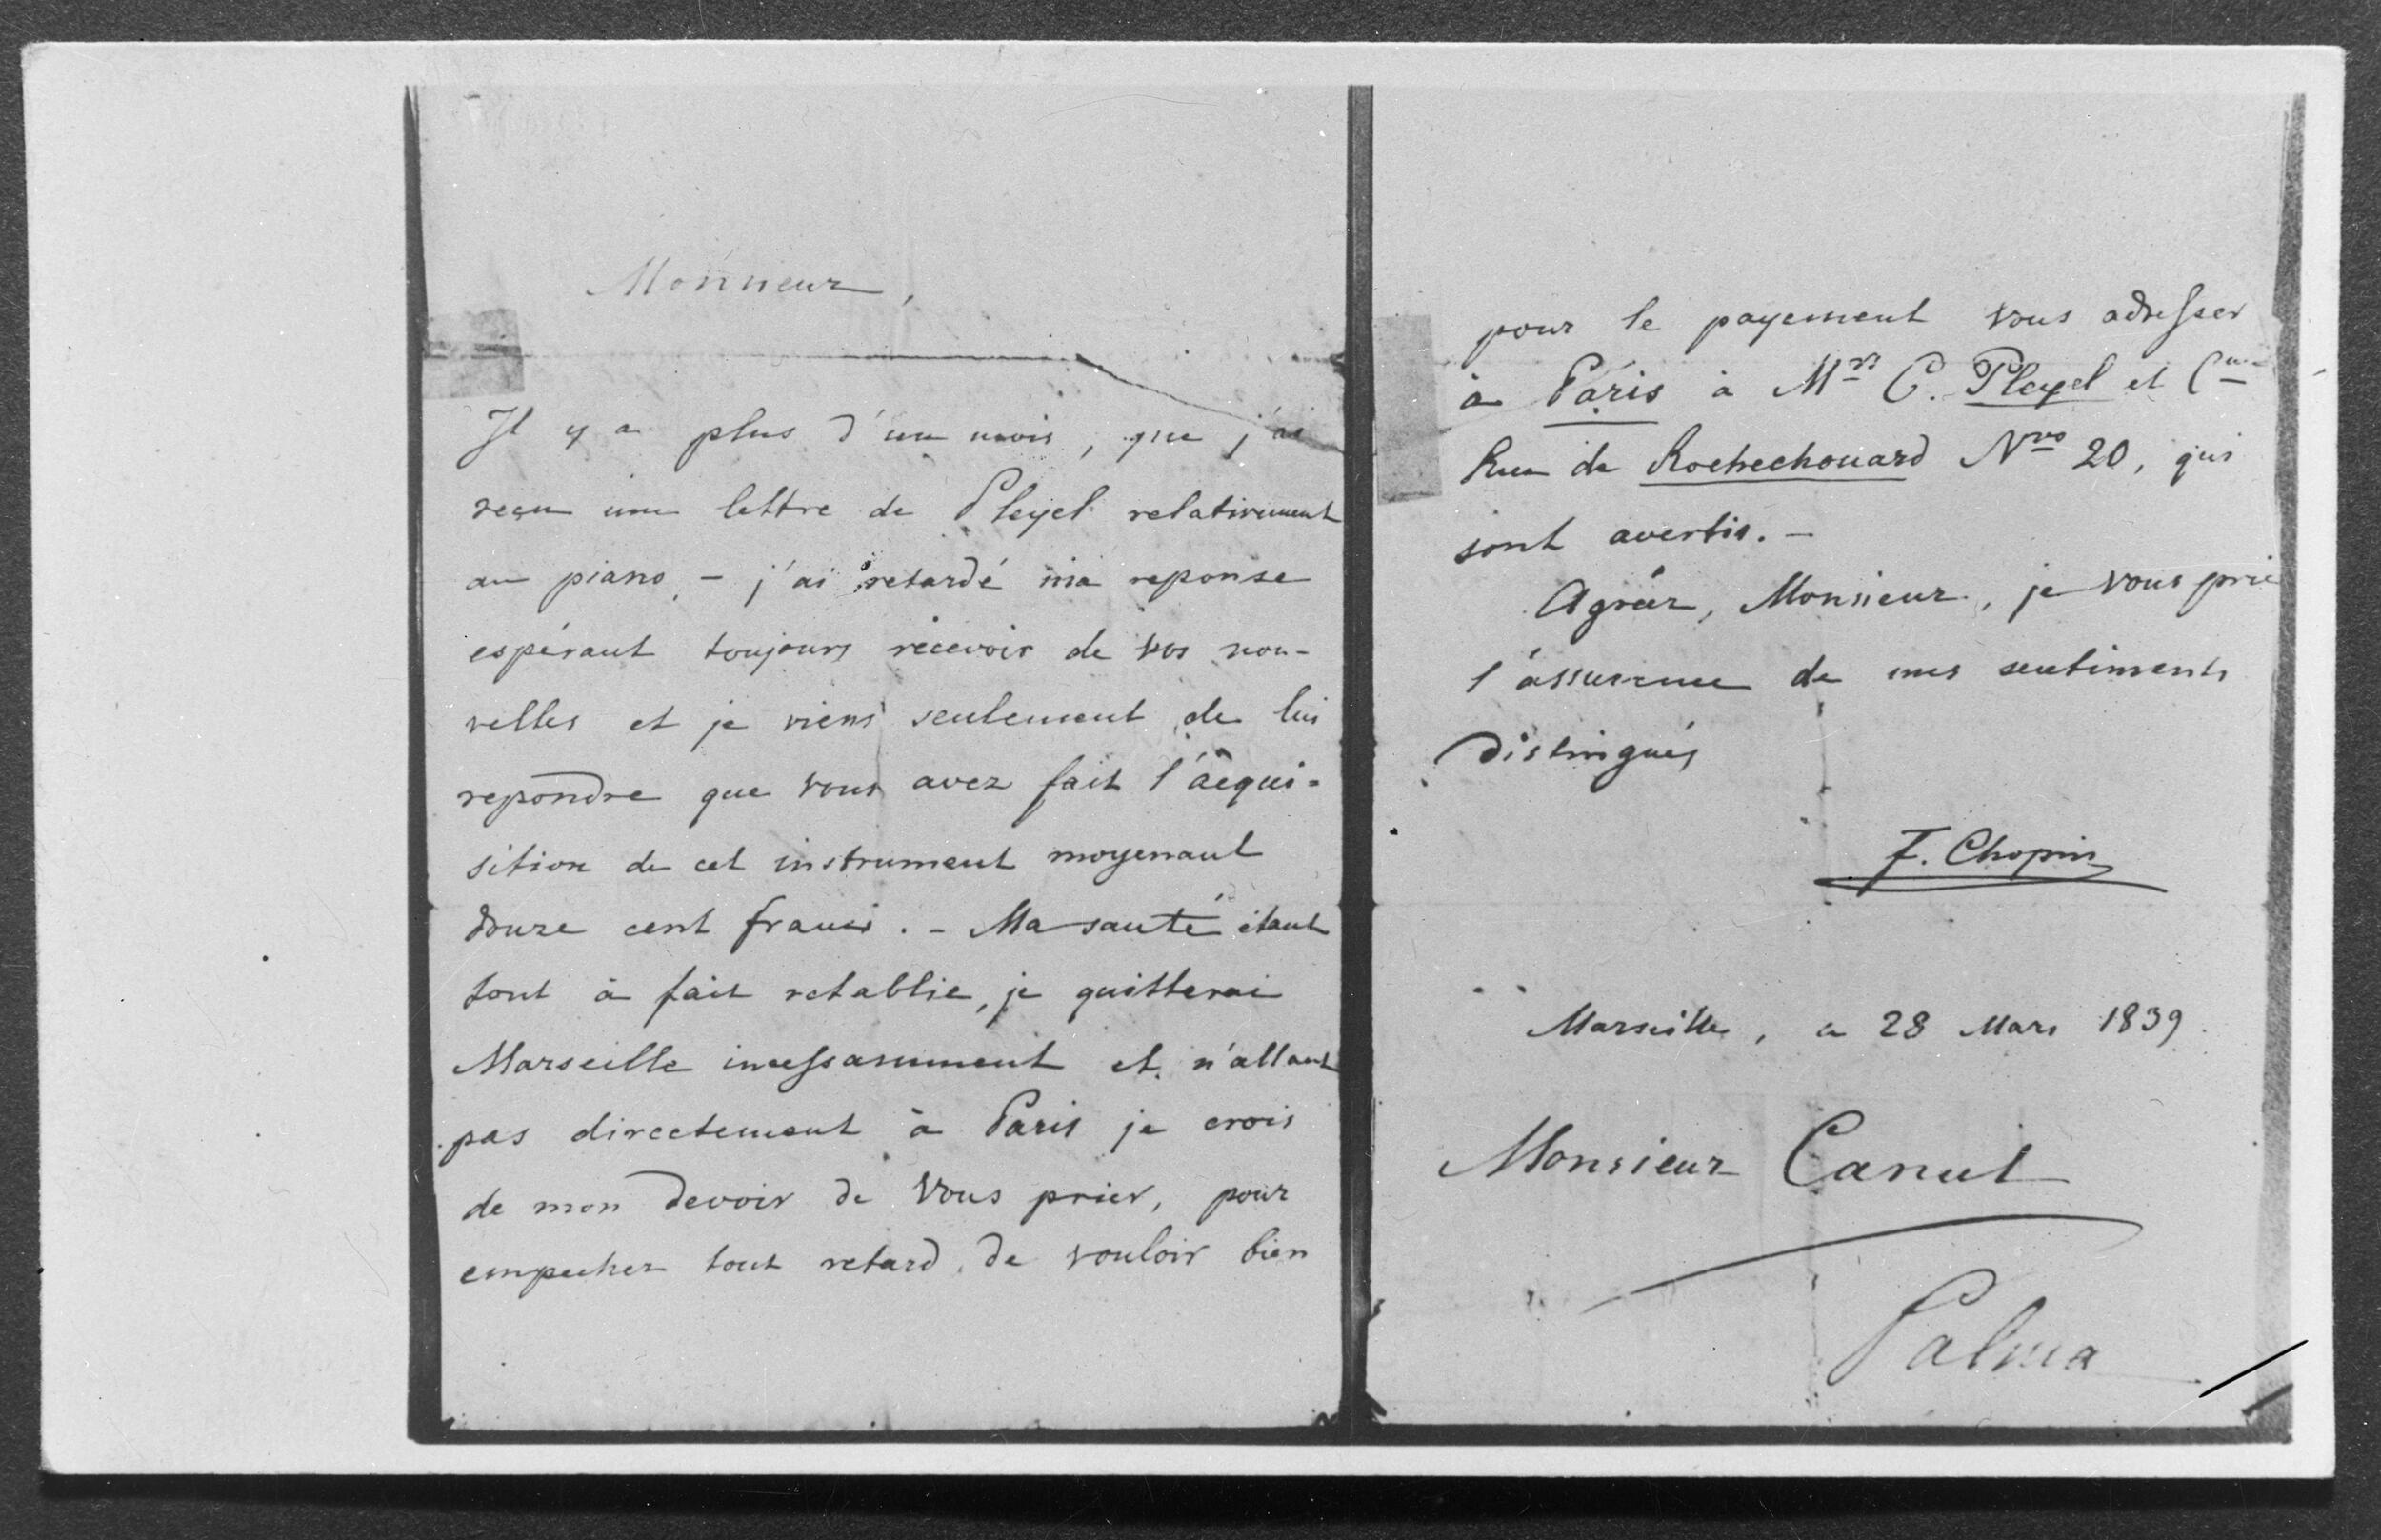 Monsieur,
Il y a plus d'un mois, que j'ai
reçu une lettre de Pleyel relativement
au piano, – j'ai retardé ma reponse
espérant toujours recevoir de vos nou-
velles et je viens seulement de lui
repondre que vous avez fait l'acqui-
sition de cet instrument moyenant
douze cent francs. – Ma santé étant
tout à fait retablie, je quitterai
Marseille incessamment et n'allant
pas directement à Paris je crois
de mon devoir de vous prier, pour
empecher tout retard, de vouloir bien
pour le payement vous adresser
à Paris à Mrs C. Pleyel et Cnie
Rue de Rochechouard Nro 20, qui
sont avertis. –
Agréez, Monsieur, je vous prie
l'assurance de mes sentiments
distingués
F. Chopin
Marseille, ce 28 Mars 1839.
Monsieur Canut
Palma